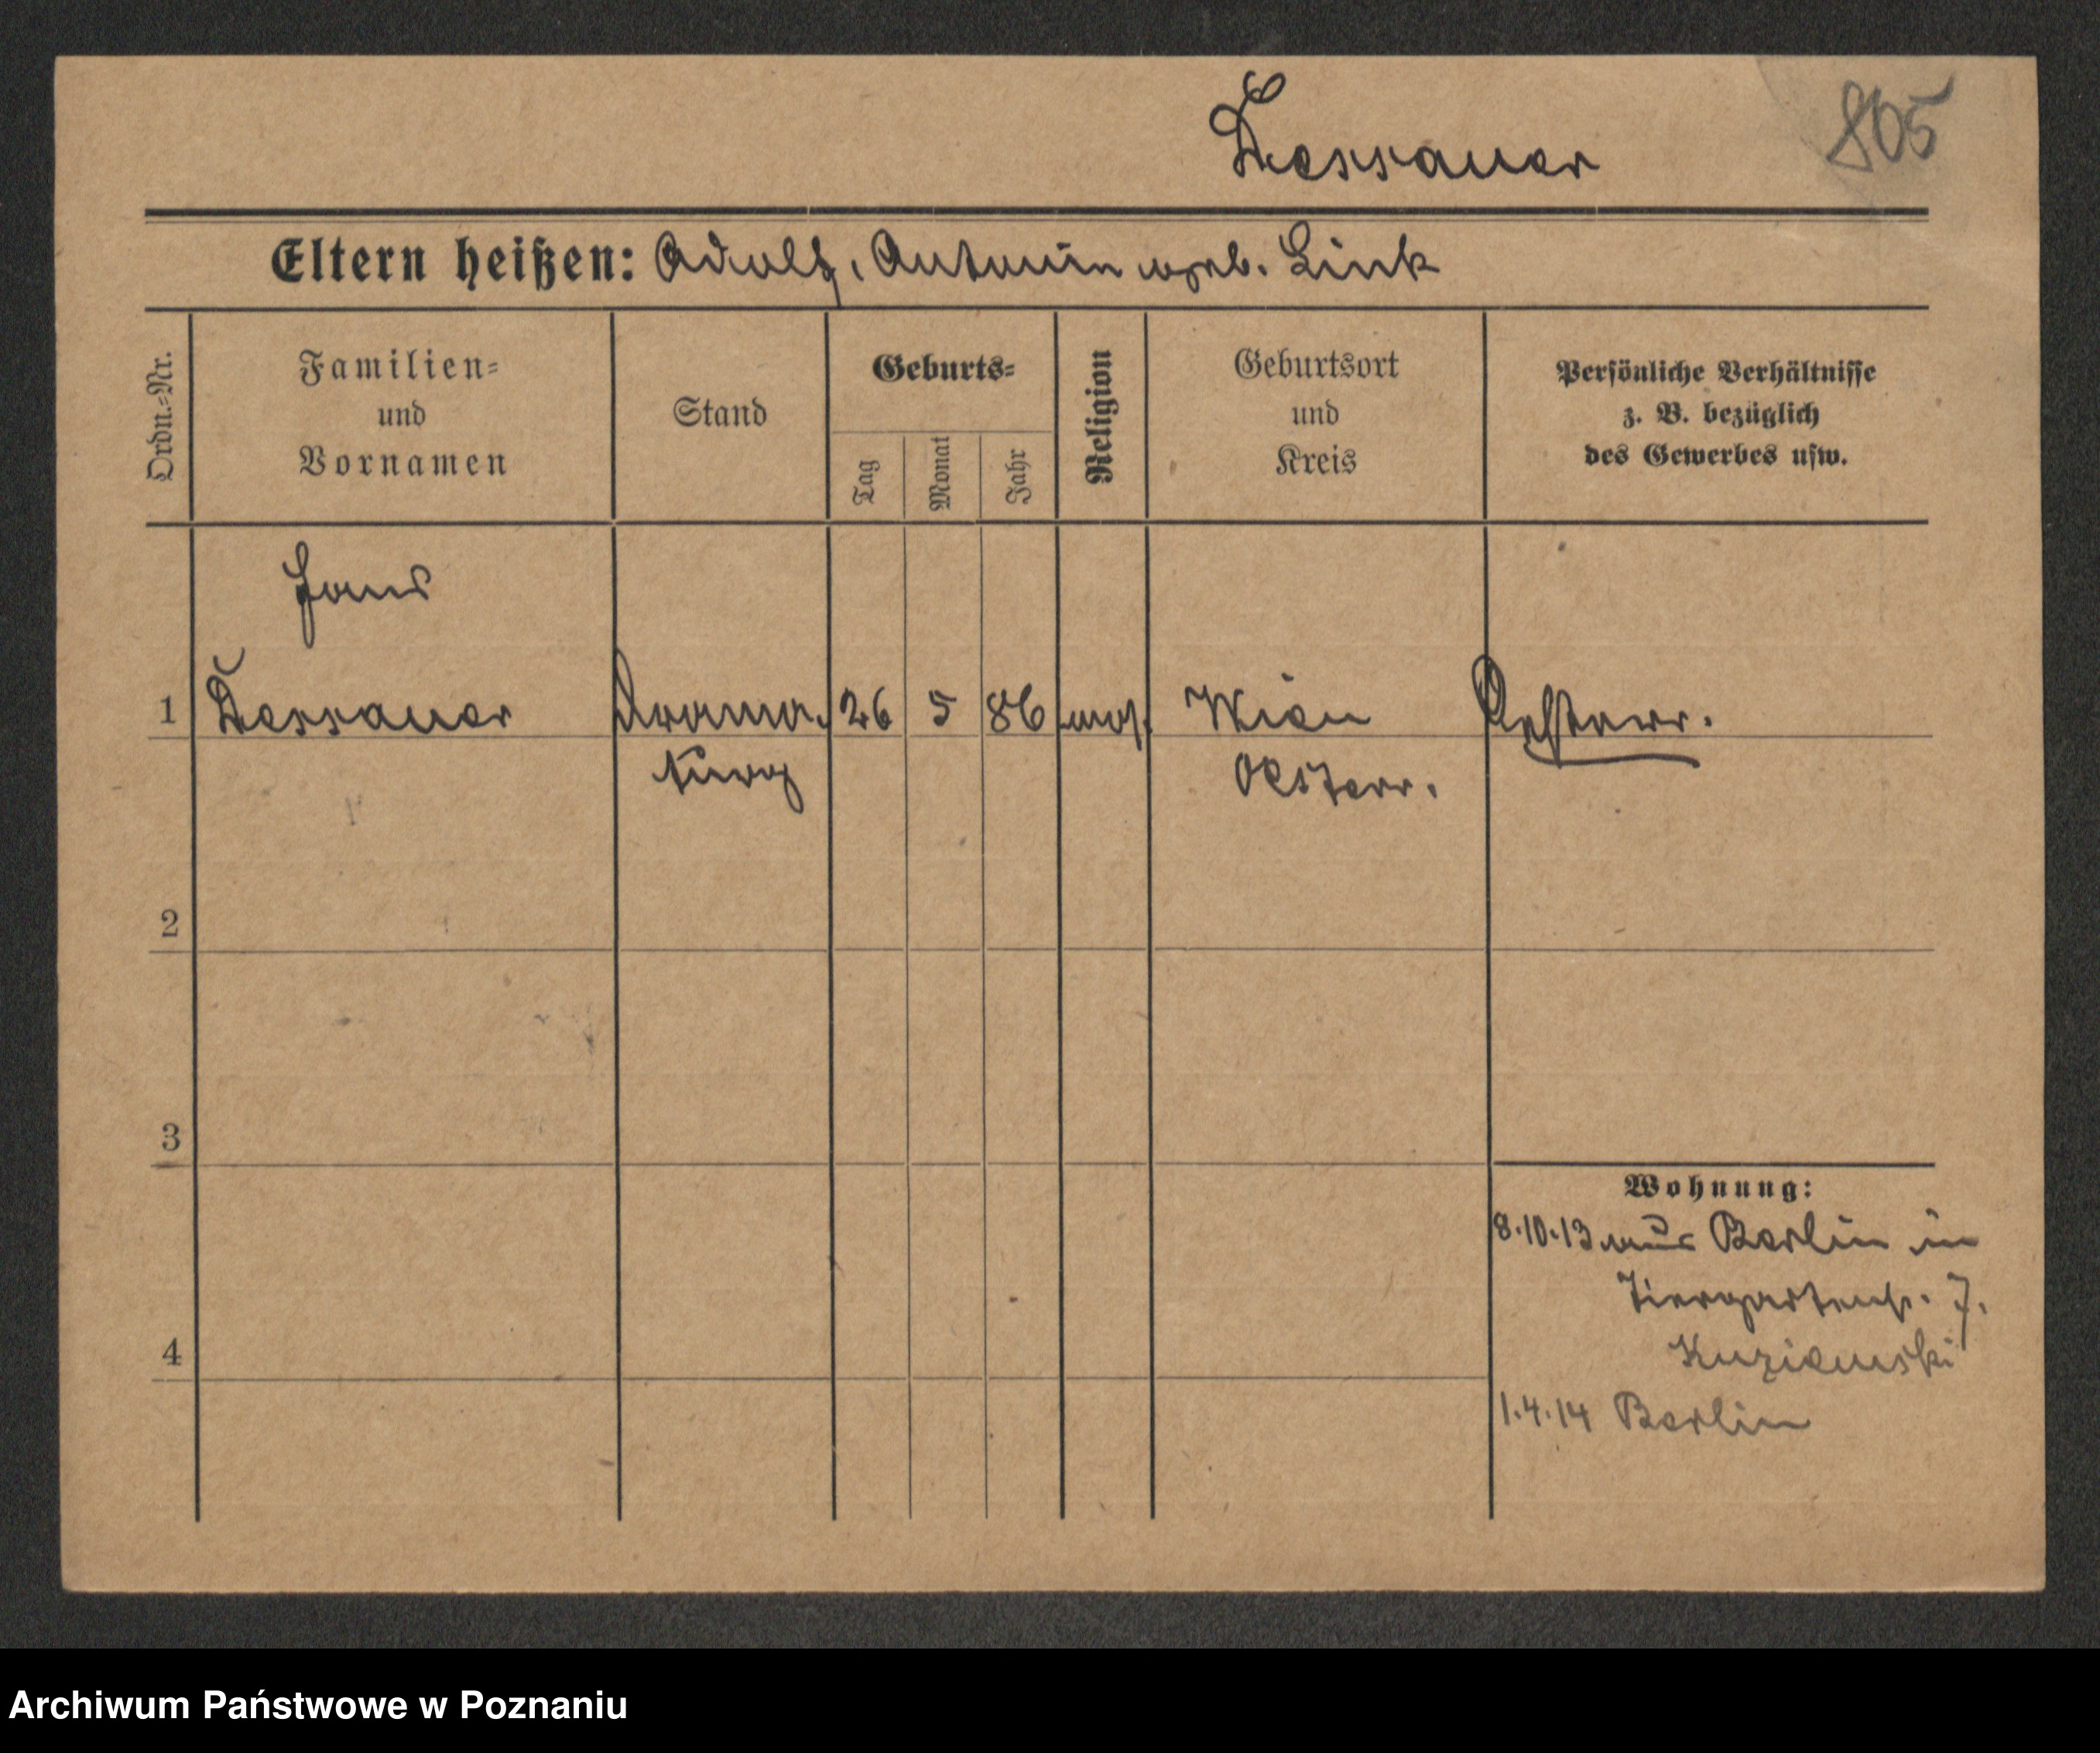 Dessauer
805
Eltern heißen: Adolf, Antonin geb. Link
Ordn.=Nr.
Familien=
und
Vornamen
Stand
Geburts=
Tag
Monat
Jahr
Religion
Geburtsort
und
Kreis
Persönliche Verhältnisse
z. B. bezüglich
des Gewerbes usw.
Hans
1 Dessauer Drama. 26 5 86 mos. Wien Oesterr.
turg Oesterr.
2
3
4
Wohnung:
8.10.13 aus Berlin in
Tiergartenstr. 7.
1.4.14 Berlin
Archiwum Państwowe w Poznaniu